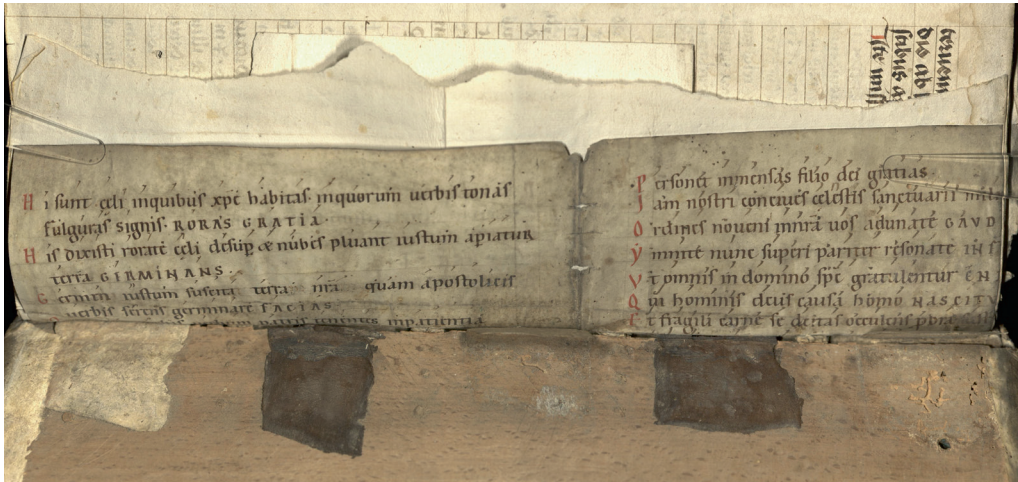 Hi sunt celi inquibus xpe habitas inquorum uerbis tonas
fulguras signis. RORAS GRATIA.
His dixisti rorate celi desup & nubes pluant iustum apiatur
terra GERMINANS.
Germen iustum suscita terra nra quam apostolicis
uerbis seris germinare FACIAS
patris tenentes impatientia
Personet inmensas filio dei gratias
Iam nostri conciues celestis sanctuarii
Ordines noueni mira uos adunate GAUD
Ymnite nunc superi pariter resonate IN
Ut omnis in domino spe gratulentur EN
Qui hominis deus causa homo NASCITU
Et fragili carne se deitas occulens
teruem
dio ab
scibus a
Iste miss